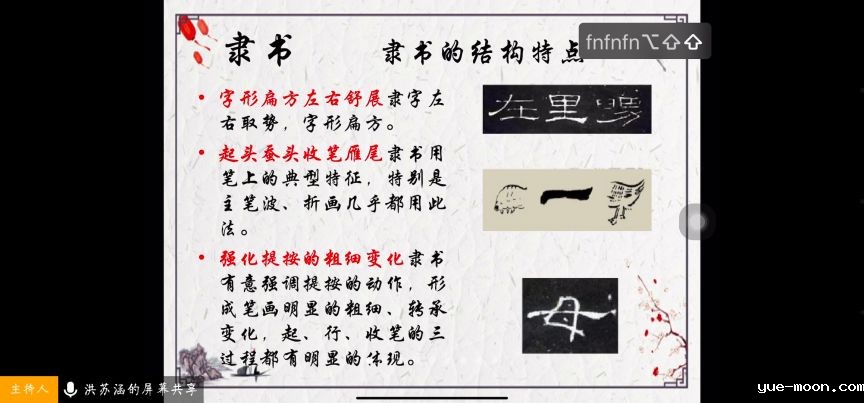 隶书 隶书的结构特点
fnfnfn⌥⇧⇧
• 字形扁方左右舒展隶字左
右取势，字形扁方。
• 起头蚕头收笔雁尾隶书用
笔上的典型特征，特别是
主笔波、折画几乎都用此
法。
• 强化提按的粗细变化隶书
有意强调提按的动作，形
成笔画明显的粗细、转承
变化，起、行、收笔的三
过程都有明显的体现。
在里
母
主持人 洪苏涵的屏幕共享
yue-moon.com